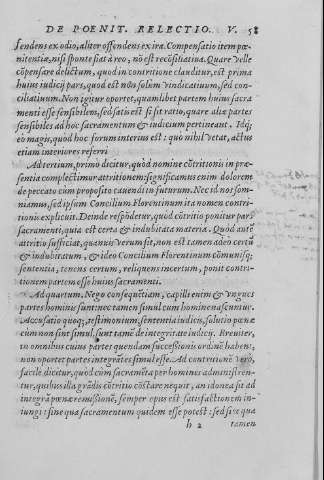 DE POENIT. RELECTIO. V. 58
fendens ex odio, aliter offendens ex ira. Compensatio item pœ
nitentia, nisi sponte fiat à reo, nō est recōsiliatiua. Quare velle
cōpensare delictum, quod in contritione clauditur, est prima
huius iudicij pars, quod est non solum vindicatiuum, sed con-
ciliatiuum. Non igitur oportet, quamlibet partem huius sacra
menti esse sensibilem, sed satis est si fit ratio, quare aliæ partes
sensibiles ad hoc sacramentum & iudicium pertineant. Idq;
eo magis, quod hoc forum interius est: quò nihil vetat, actus
etiam interiores referri
Ad tertium, primo dicitur, quòd nomine cōtritionis in præ-
sentia complectimur attritionem: significamus enim dolorem
de peccato cum proposito cauendi in futurum. Nec id nos som-
niamus, sed ipsum Concilium Florentinum ita nomen contri-
tionis explicuit. Deinde respōdetur, quòd cōtritio ponitur pars
sacramenti, quia est certa & indubitata materia. Quòd autē
attritio sufficiat, quanuis verum sit, non est tamen adeo certū
& indubitatum, & ideo Concilium Florentinum cōmunisq;
sententia, tenens certum, reliquens incertum, ponit contri-
tionem partem esse huius sacramenti.
Ad quartum. Nego consequētiam, capilli enim & vngues
partes hominis sunt: nec tamen simul cum homine nascuntur.
Accusatio quoq;, testimonium, sententia iudicis, solutio pœnæ
cum non sint simul, sunt tamē de integritate iudicij. Breuiter,
in omnibus cuius partes quendam successionis ordinē habent,
non oportet partes integrātes simul esse. Ad contritionē verò,
facile dicitur, quòd cum sacramēta per homines administren-
tur, quibus illa grādis cōtritio cōstare nequit, an idonea sit ad
integrā pœnæ remissionē, semper opus est satisfactionem in-
iungi: sine qua sacramentum quidem esse potest: sed sine qua
h 2 tamen